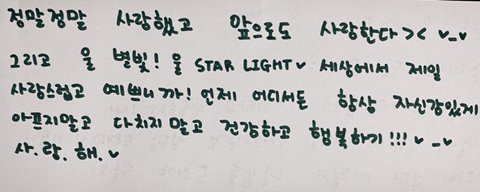 정말정말 사랑했고 앞으로도 사랑한다>< ♥_♥
그리고 울 별빛! 울 STAR LIGHT♥ 세상에서 제일
사랑스럽고 예쁘니까! 언제 어디서든 항상 자신감있게
아프지말고 다치지 말고 건강하고 행복하기!!! ♥_♥
사.랑.해.♥